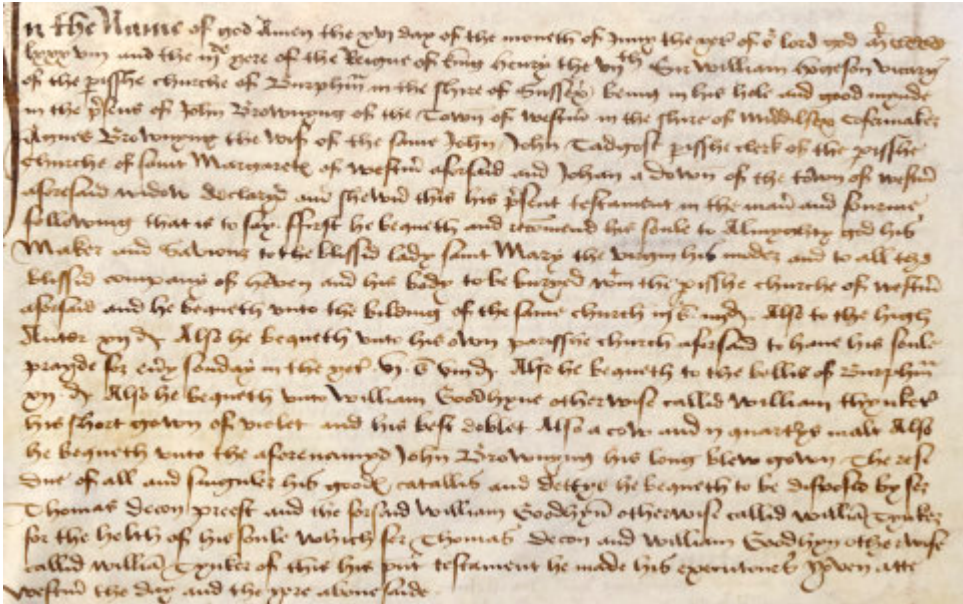 In the Name of god Amen the xvj day of the moneth of Juny the yer of or lord god Mcccc
lxxxviij and the iijde yere of the Reigne of king Henry the vijth Sir William hogeson vicary
of the pisshe churche of Burphm in the shire of Sussex being in his hole and good mynde
in the psens of John Brownyng of the Town of westm in the shire of middelsex Cofermaker
Agnes Brownyng the wif of the same John John Tadgost pisshe clerk of the pisshe
Churche of saint Margarete of westm aforsaid and Johan a down of the town of westm
aforesaid widow declaryd and shewid this his psent testament in the man and fourme
following that is to say ffirst he bequeth and recomend his soule to Almyghty god his
Maker and Saviour to the blessid lady saint Mary the virgin his moder and to all the
blessid company of heven and his body to be buryed wtin the pisshe churche of westm
aforsaid and he bequeth unto the bilding of the same church iij s iiij d Also to the high
Auter xij d Also he bequeth unto his own parisshe church aforsaid to have his soule
prayde for evy sonday in the yer vj s viij d Also he bequeth to the bellis of Burphm
xij d Also he bequeth unto William Goodhyne otherwise callid william thynker
his short gown of violet and his best doblet Also a cow and ij quarters malt Also
he bequeth unto the aforenamyd John Brownyng his long blew gown The resi
due of all and singuler his goodes catallis and dettys he bequeth to be disposed by ser
Thomas decon preest and the forsaid william Goodhyn otherwise callid william Tynker
for the helth of his soule which ser Thomas decon and william Goodhyn otherwise
callid william Tynker of this his psnt testament he made his executores yeven atte
westm the day and the yere abovesaide